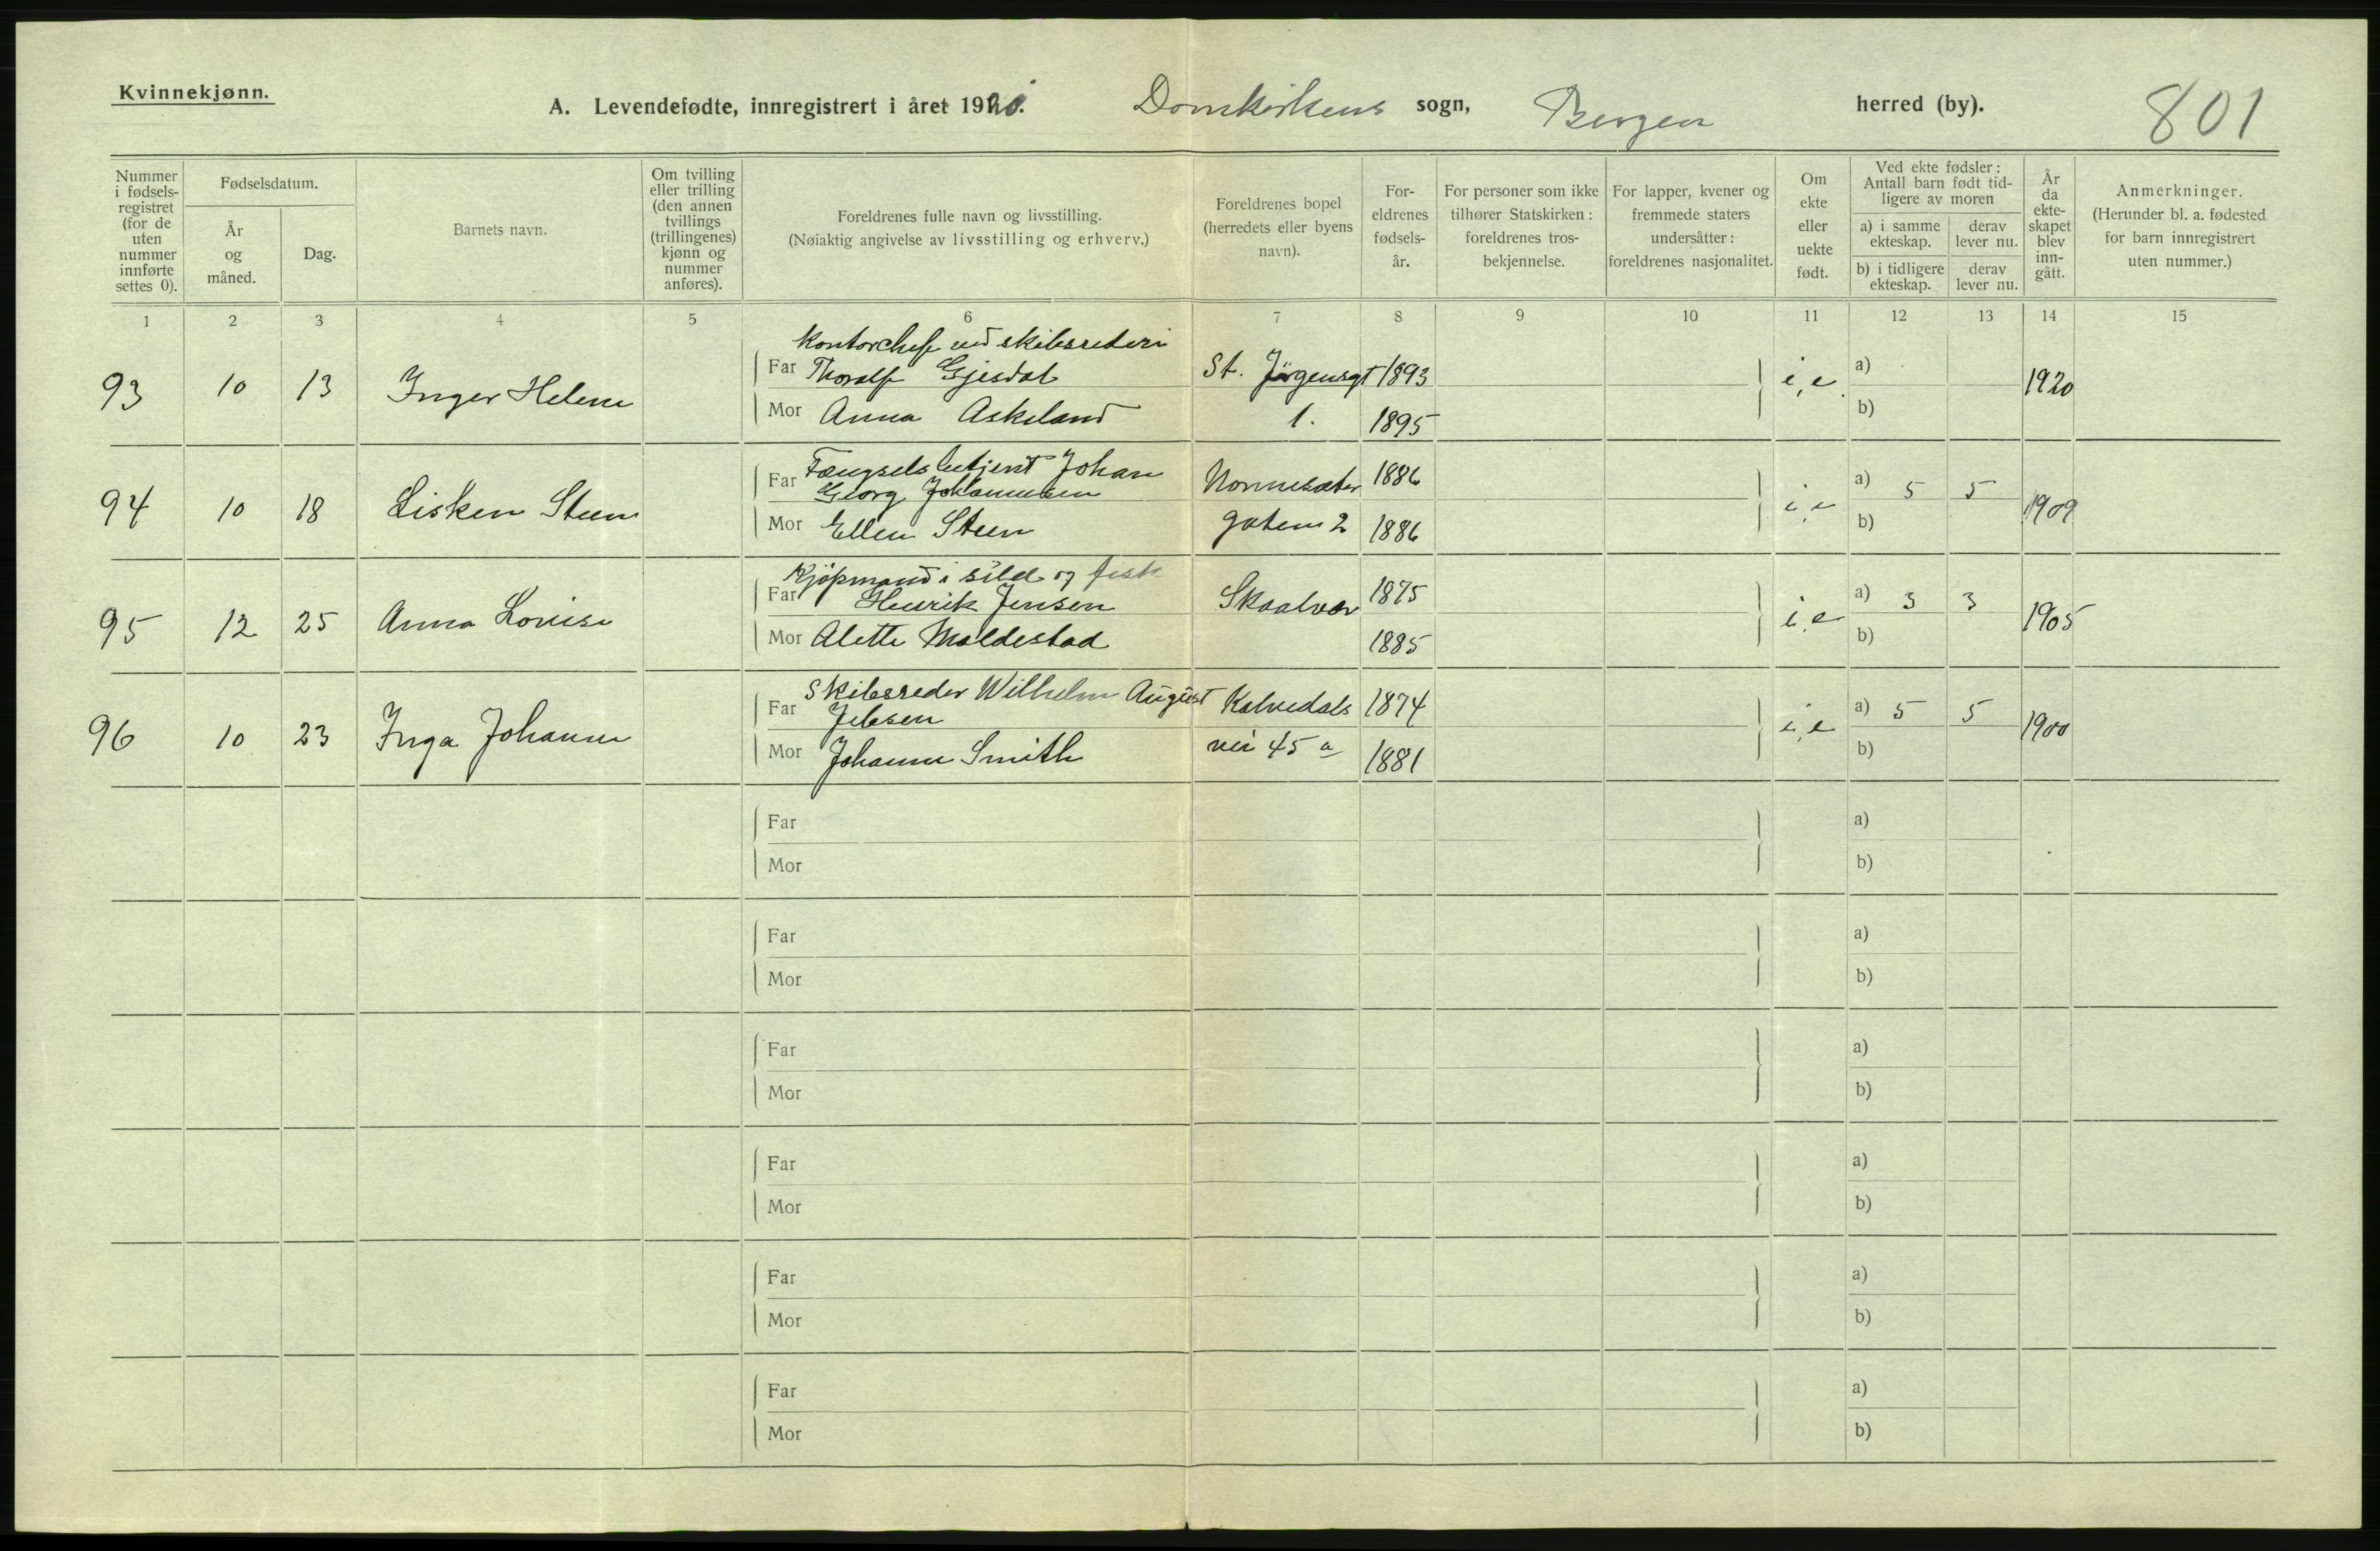 Kvinnekjønn.
A. Levendefødte, innregistrert i året 1920. Domkirkens sogn, Bergen herred (by). 801
Nummer i fødselsregistret (for de uten nummer innførte settes 0).
Fødselsdatum.
År og måned.
Dag.
Barnets navn.
Om tvilling eller trilling (den annen tvillings (trillingenes) kjønn og nummer anføres).
Foreldrenes fulle navn og livsstilling.
(Nøiaktig angivelse av livsstilling og erhverv.)
Foreldrenes bopel (herredets eller byens navn).
Foreldrenes fødselsår.
For personer som ikke tilhører Statskirken: foreldrenes trosbekjennelse.
For lapper, kvener og fremmede staters undersåtter: foreldrenes nasjonalitet.
Om ekte eller uekte født.
Ved ekte fødsler: Antall barn født tidligere av moren
a) i samme ekteskap. derav lever nu.
b) i tidligere ekteskap. derav lever nu.
År da ekteskapet blev inngått.
Anmerkninger.
(Herunder bl. a. fødested for barn innregistrert uten nummer.)
1 2 3 4 5 6 7 8 9 10 11 12 13 14 15
Kontorchef ved skibsrederi
93 10 13 Inger Helene Far Thoralf Gjesdal St. Jörgensgt 1893 i,e. a) 1920
Mor Anna Askeland 1. 1895 b)
Fængselsbetjent Johan
94 10 18 Lisken Steen Far Georg Johannesen Nonnesæter 1886 i,e a) 5 5 1909
Mor Ellen Steen gaten 2 1886 b)
Kjöpmand i sild og fisk
95 12 25 Anna Louise Far Henrik Jensen Skaalvær 1875 i,e a) 3 3 1905
Mor Alette Moldestad 1885 b)
Skibsreder Wilhelm August
96 10 23 Inga Johanne Far Jebsen Kalvedals 1874 i,e a) 5 5 1900
Mor Johanne Smith vei 45 a 1881 b)
Far a)
Mor b)
Far a)
Mor b)
Far a)
Mor b)
Far a)
Mor b)
Far a)
Mor b)
Far a)
Mor b)